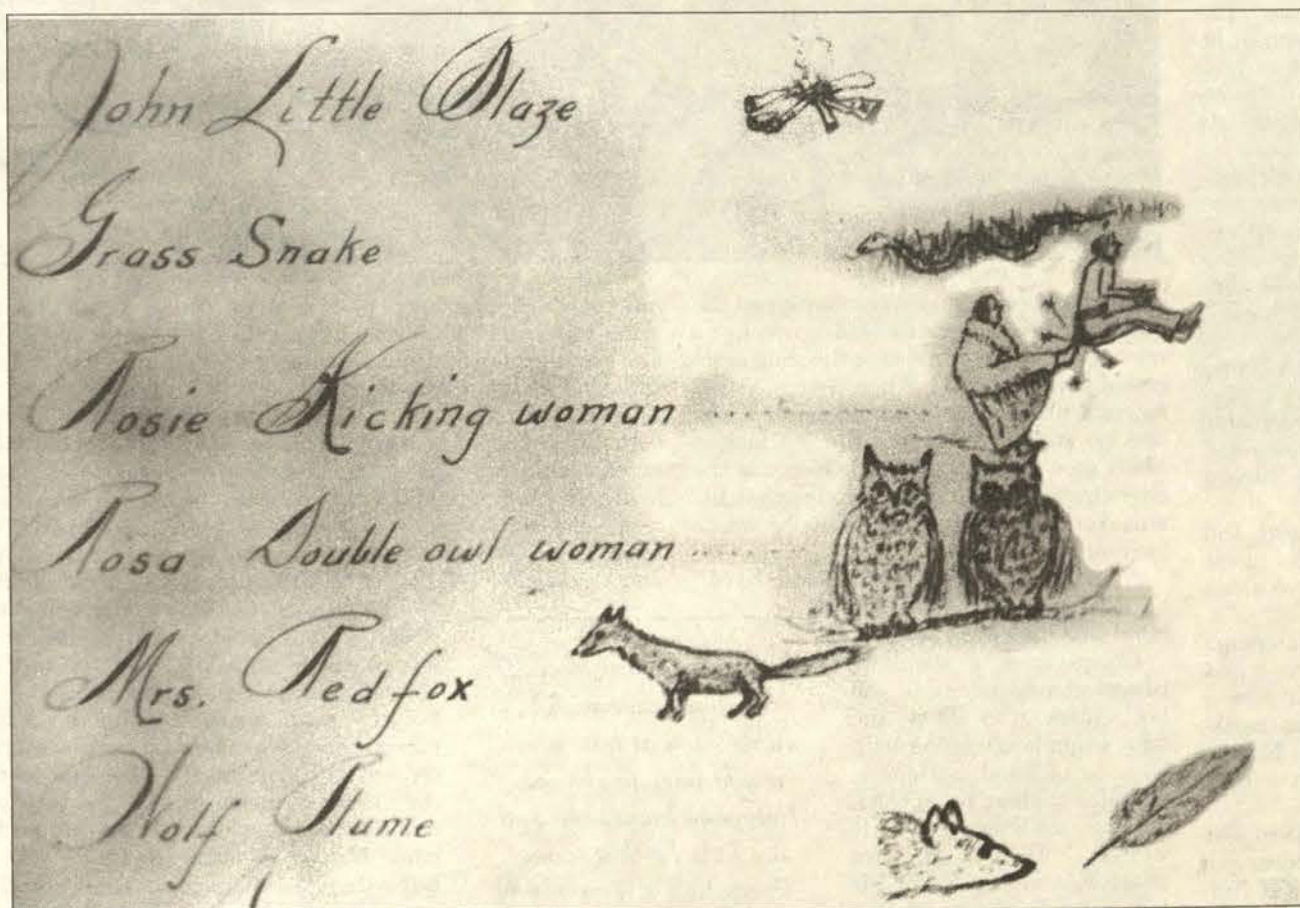 John Little Blaze
Grass Snake
Rosie Kicking woman
Rosa Double owl woman
Mrs. Red fox
Wolf Plume